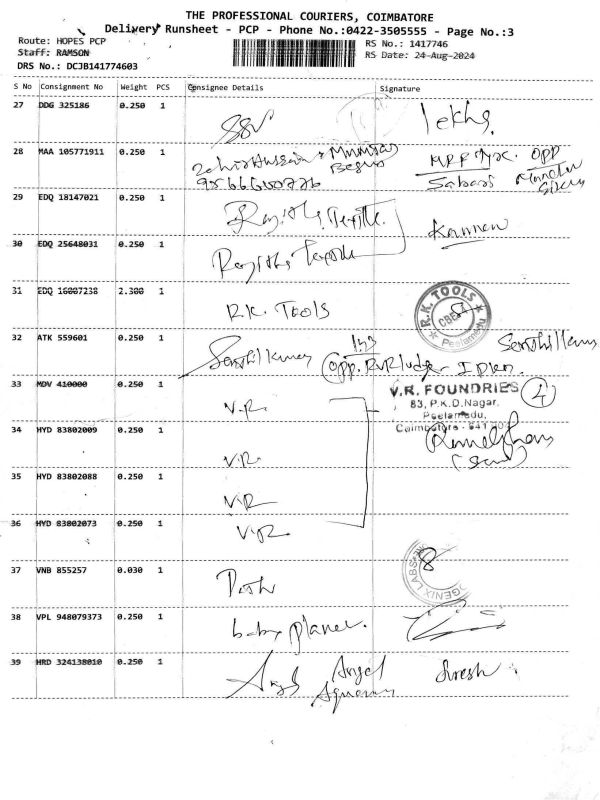 THE PROFESSIONAL COURIERS, COIMBATORE
Delivery Runsheet - PCP - Phone No.:0422-3505555 - Page No.:3
Route: HOPES PCP
RS No.: 1417746
Staff: RAMSON
RS Date: 24-Aug-2024
DRS No.: DCJB141774603
S No Consignment No Weight PCS Consignee Details Signature
27 DDG 325186 0.250 1 SSV lekha
28 MAA 105771911 0.250 1 Opp
Begum Sabari
29 EDQ 18147021 0.250 1
30 EDQ 25648031 0.250 1 Kannan
31 EDQ 16007238 2.300 1 R.K. TOOLS
R.K. TOOLS
CBE
Peelamedu
32 ATK 559601 0.250 1 Senthilkumar Senthilkumar
Opp.
33 MDV 410000 0.250 1 V.R.
V.R. FOUNDRIES 4
83, P.K.D.Nagar,
Peelamedu,
Coimbatore
34 HYD 83802009 0.250 1 V.R.
35 HYD 83802088 0.250 1 V.R
36 HYD 83802073 0.250 1 V.R.
37 VNB 855257 0.030 1
38 VPL 948079373 0.250 1 baby planet.
39 HRD 324138010 0.250 1 Angel Suresh